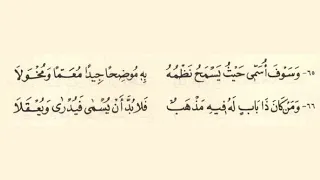 ٦٥- وَسَوْفَ أُسَمِّى حَيْثُ يَسْمَحُ نَظْمُهُ بِهِ مُوضِحًا جِيدًا مُعَمًّا وَمُخْوَلَا
٦٦- وَمَنْ كَانَ ذَا بَابٍ لَهُ فِيهِ مَذْهَبٌ فَلَا بُدَّ أَنْ يُسْمَى فَيُدْرَى وَيُعْقَلَا